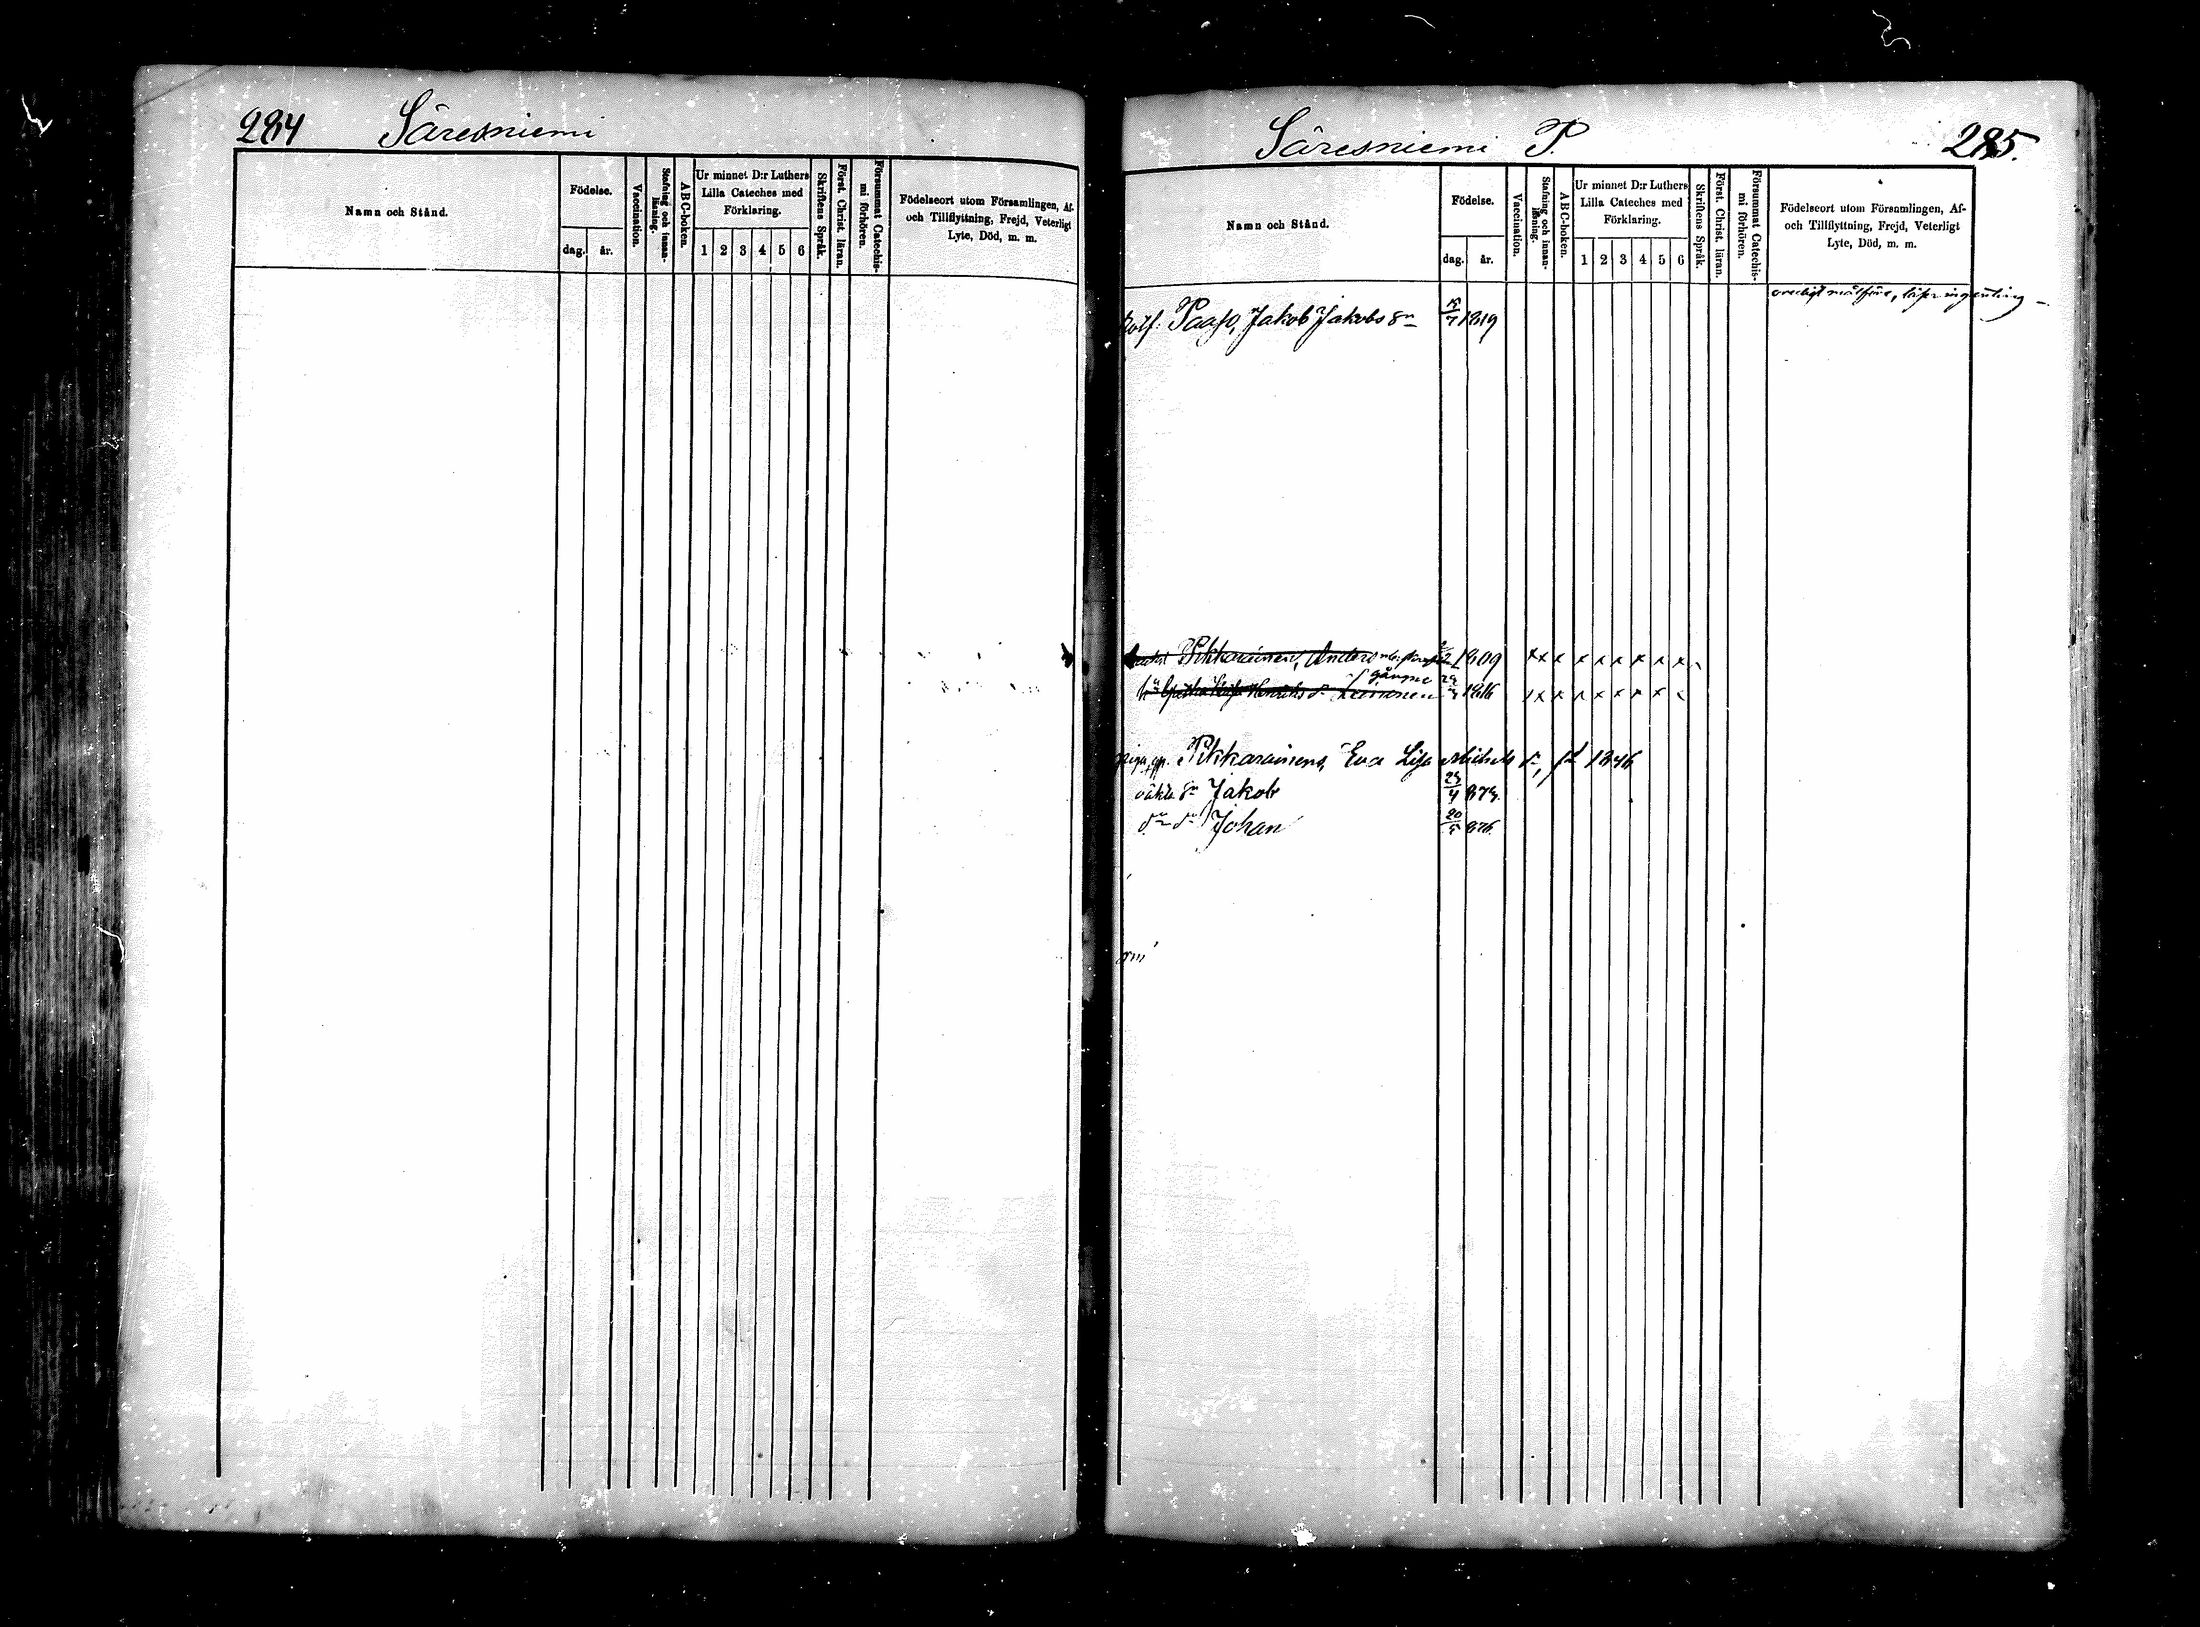 284 Säresniemi
Namn och Stånd.
Födelse.
dag. år.
Vaccination.
Stafning och innan-läsning.
ABC-boken.
Ur minnet D:r Luthers
Lilla Cateches med
Förklaring.
1 2 3 4 5 6
Skriftens Språk.
Först. Christ. läran.
Försummat Catechis-mi förhören.
Födelseort utom Församlingen, Af-
och Tillflyttning, Frejd, Veterligt
Lyte, Död, m. m.
Säresniemi P. 285.
Namn och Stånd.
Födelse.
dag. år.
Vaccination.
Stafning och innan-läsning.
ABC-boken.
Ur minnet D:r Luthers
Lilla Cateches med
Förklaring.
1 2 3 4 5 6
Skriftens Språk.
Först. Christ. läran.
Försummat Catechis-mi förhören.
Födelseort utom Församlingen, Af-
och Tillflyttning, Frejd, Veterligt
Lyte, Död, m. m.
ingenting
Paaso, Jakob Jakobs sn 1819
Pikkarainen, Anders 1809 x x x x x x x x x
1816 x x x x x x x x
Pikkarainen, Eva Lisa Michels dr, fd 1846
oäkta sn Jakob 23/4 873.
Johan 20/5 876.